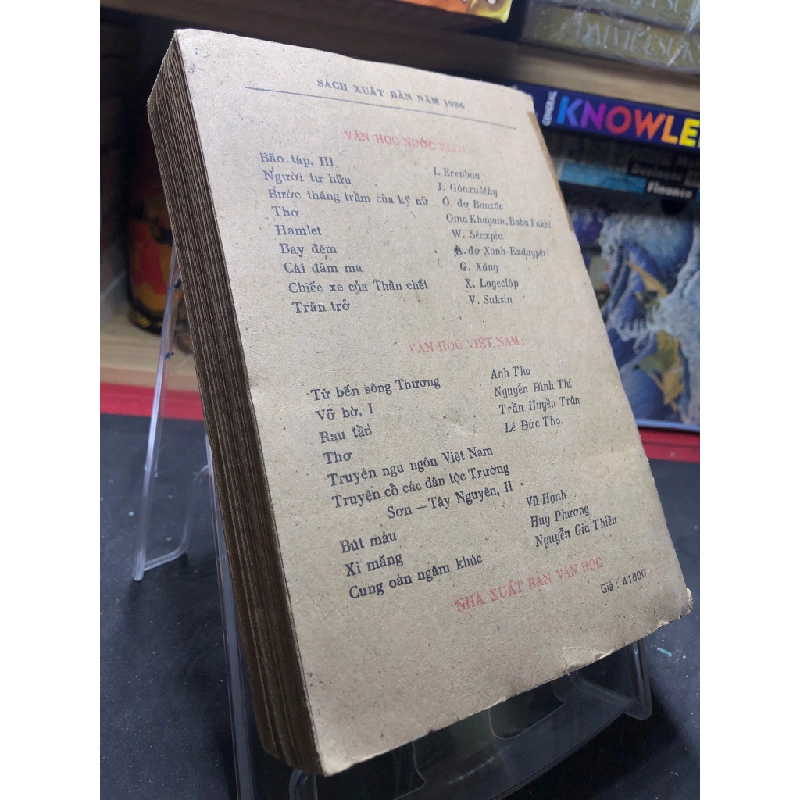 SÁCH XUẤT BẢN NĂM 1986
VĂN HỌC NƯỚC
Bão táp, III I. Erenbua
Người tư hữu J. Gônxuâthy
Bước thăng trầm của kỹ nữ Ô. đơ Banzắc
Thơ Oma Khayam, Baba Takhi
Hamlet W. Sêcxpia
Bay đêm A. đơ Xanh-Exduypêri
Cái đầm ma G. Xăng
Chiếc xe của Thần chết X. Lageclôp
Trăn trở V. Suksin
VĂN HỌC VIỆT NAM
Từ bến sông Thương Anh Thơ
Vỡ bờ, I Nguyễn Đình Thi
Rau tần Trần Huyền Trân
Thơ Lê Đức Thọ
Truyện ngụ ngôn Việt Nam
Truyện cổ các dân tộc Trường
Sơn – Tây Nguyên, II
Bút máu Vũ Hạnh
Xi măng Huy Phương
Cung oán ngâm khúc Nguyễn Gia Thiều
NHÀ XUẤT BẢN VĂN HỌC
Giá : 41800
GENERAL
KNOWLE
Finance